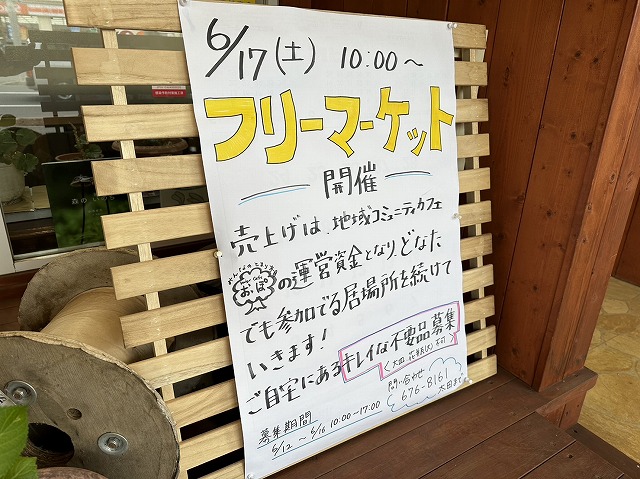 6/17(土) 10:00〜
フリーマーケット
開催
売上げは、地域コミュニティカフェ
の運営資金となり、どなた
でも参加でる居場所を続けて
いきます!
ご自宅にあるキレイな不要品募集
募集期間
6/12〜6/16 10:00〜17:00
問い合わせ
676-8161
太田まで